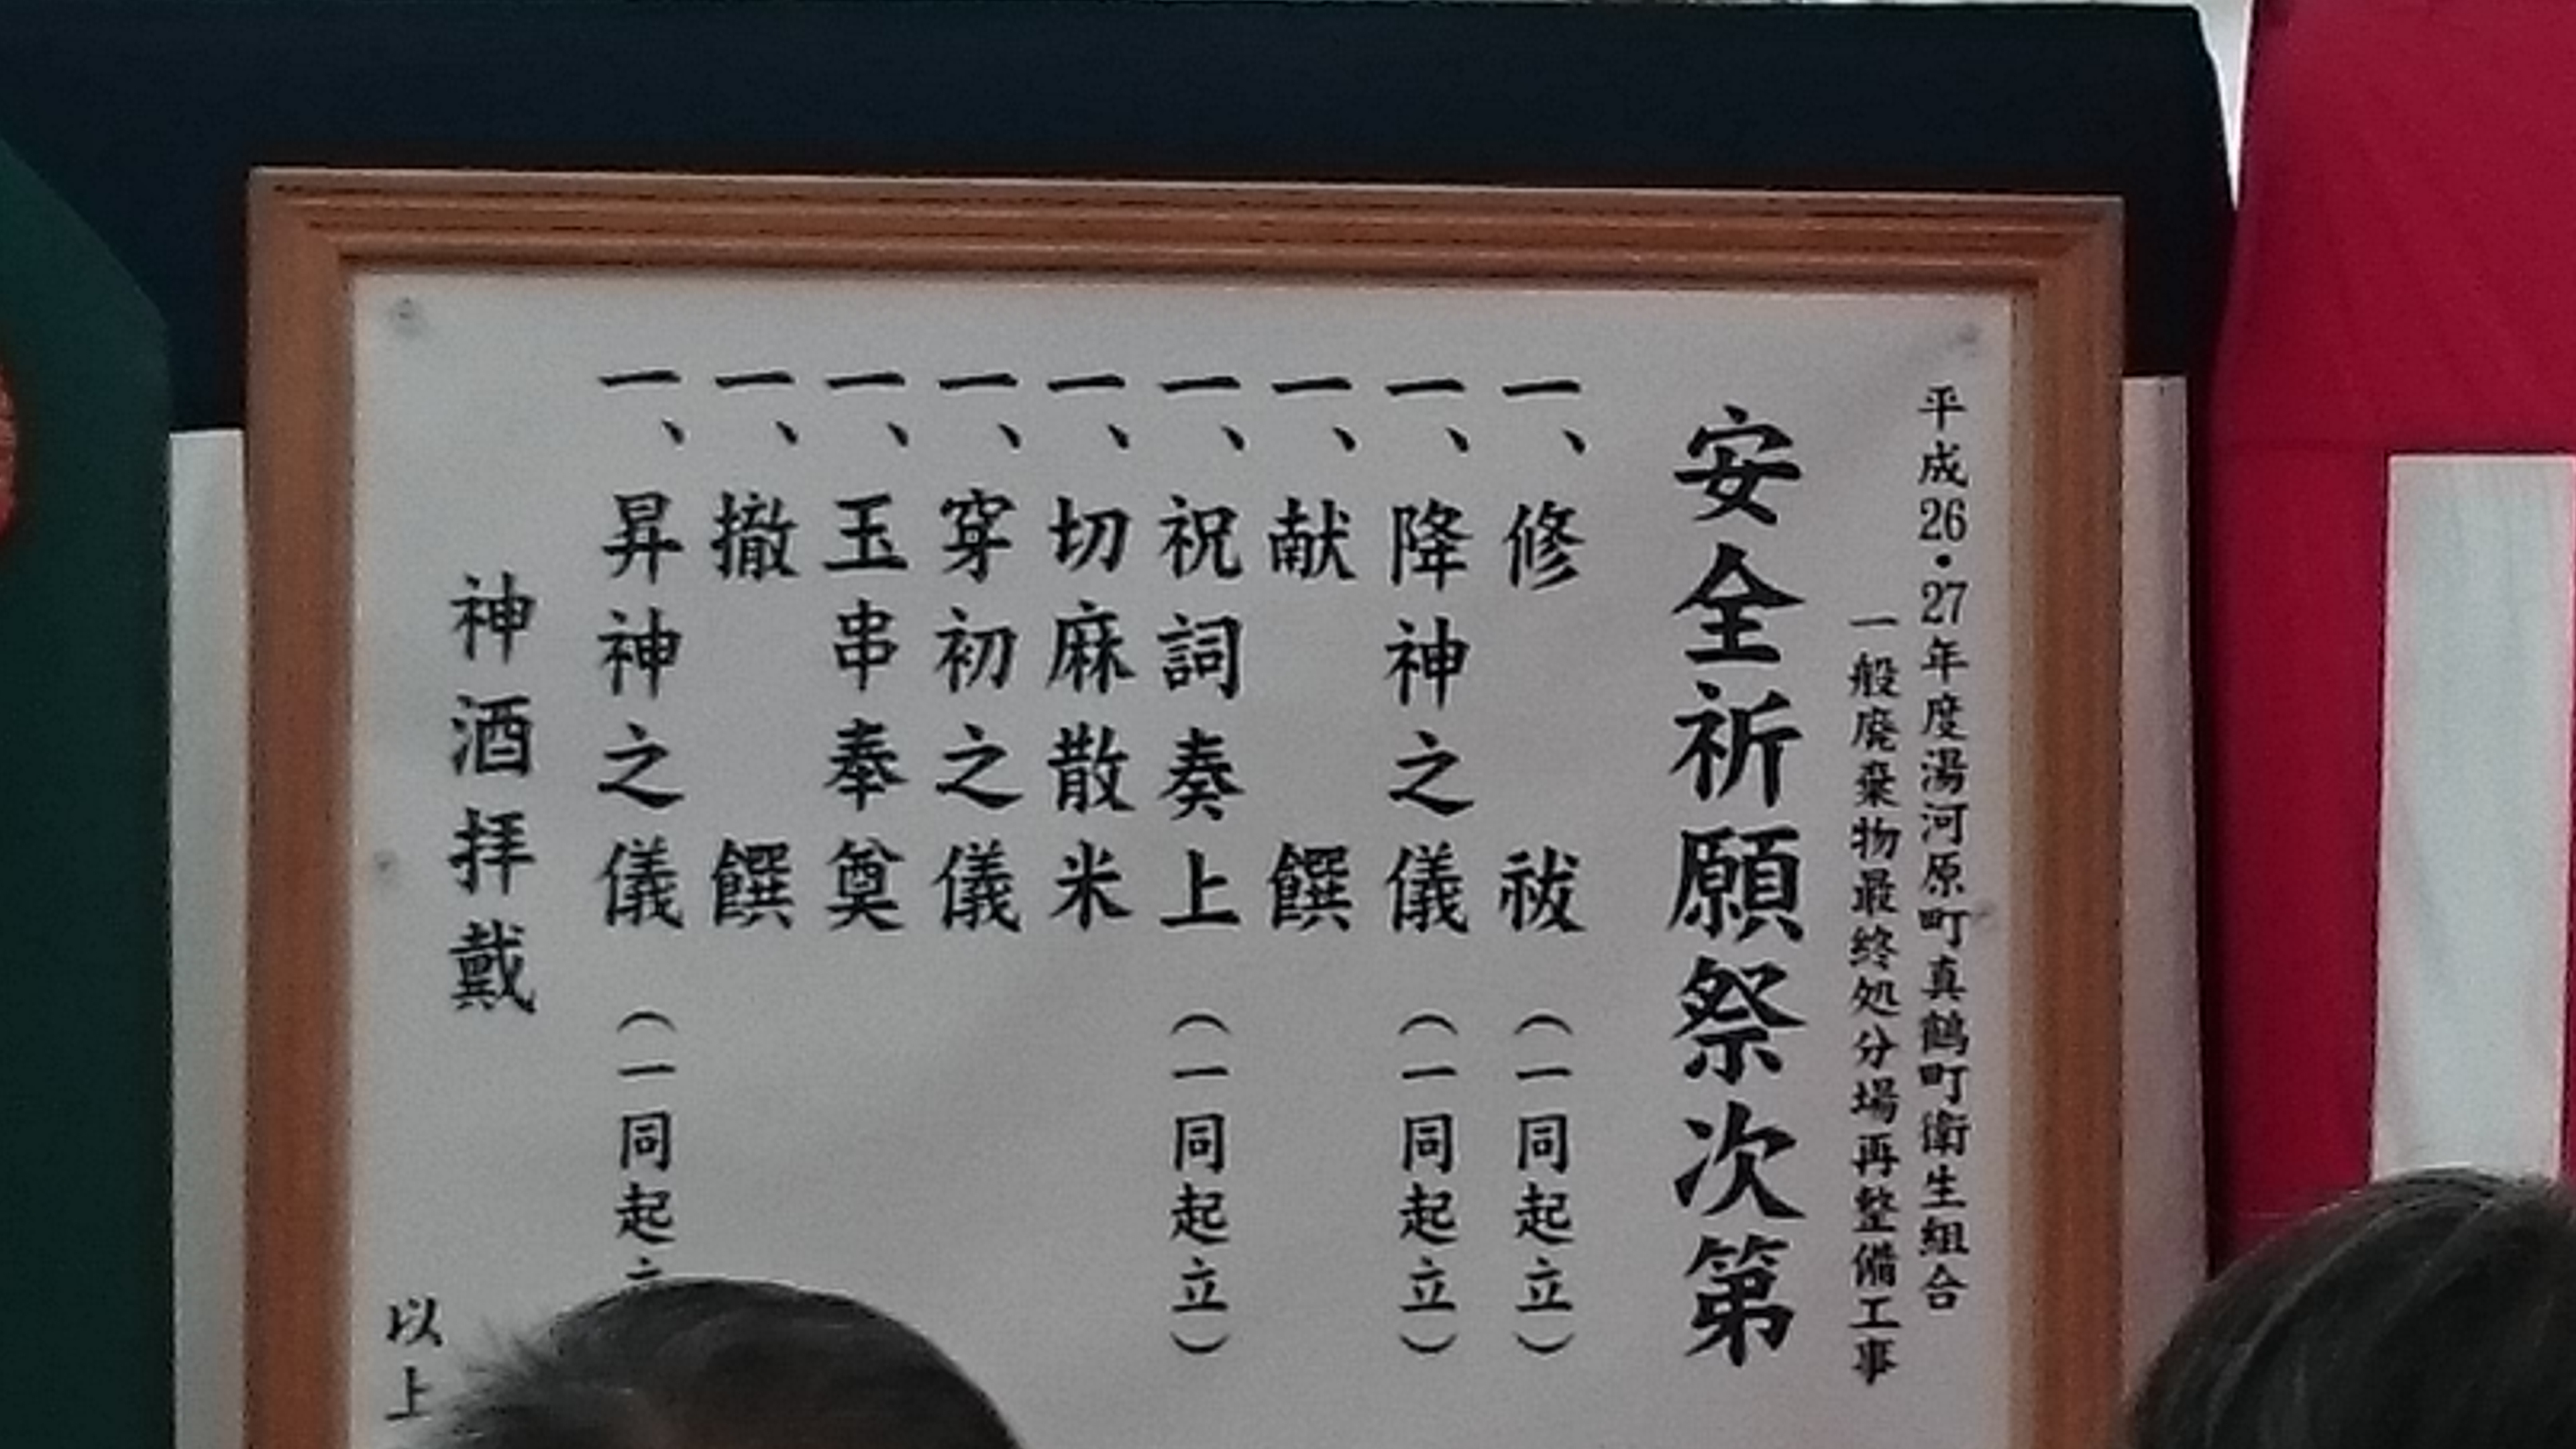 平成26・27年度湯河原町真鶴町衛生組合
一般廃棄物最終処分場再整備工事
安全祈願祭次第
一、修祓（一同起立）
一、降神之儀（一同起立）
一、献饌
一、祝詞奏上（一同起立）
一、切麻散米
一、穿初之儀
一、玉串奉奠
一、撤饌
一、昇神之儀（一同起立
神酒拝戴
以上